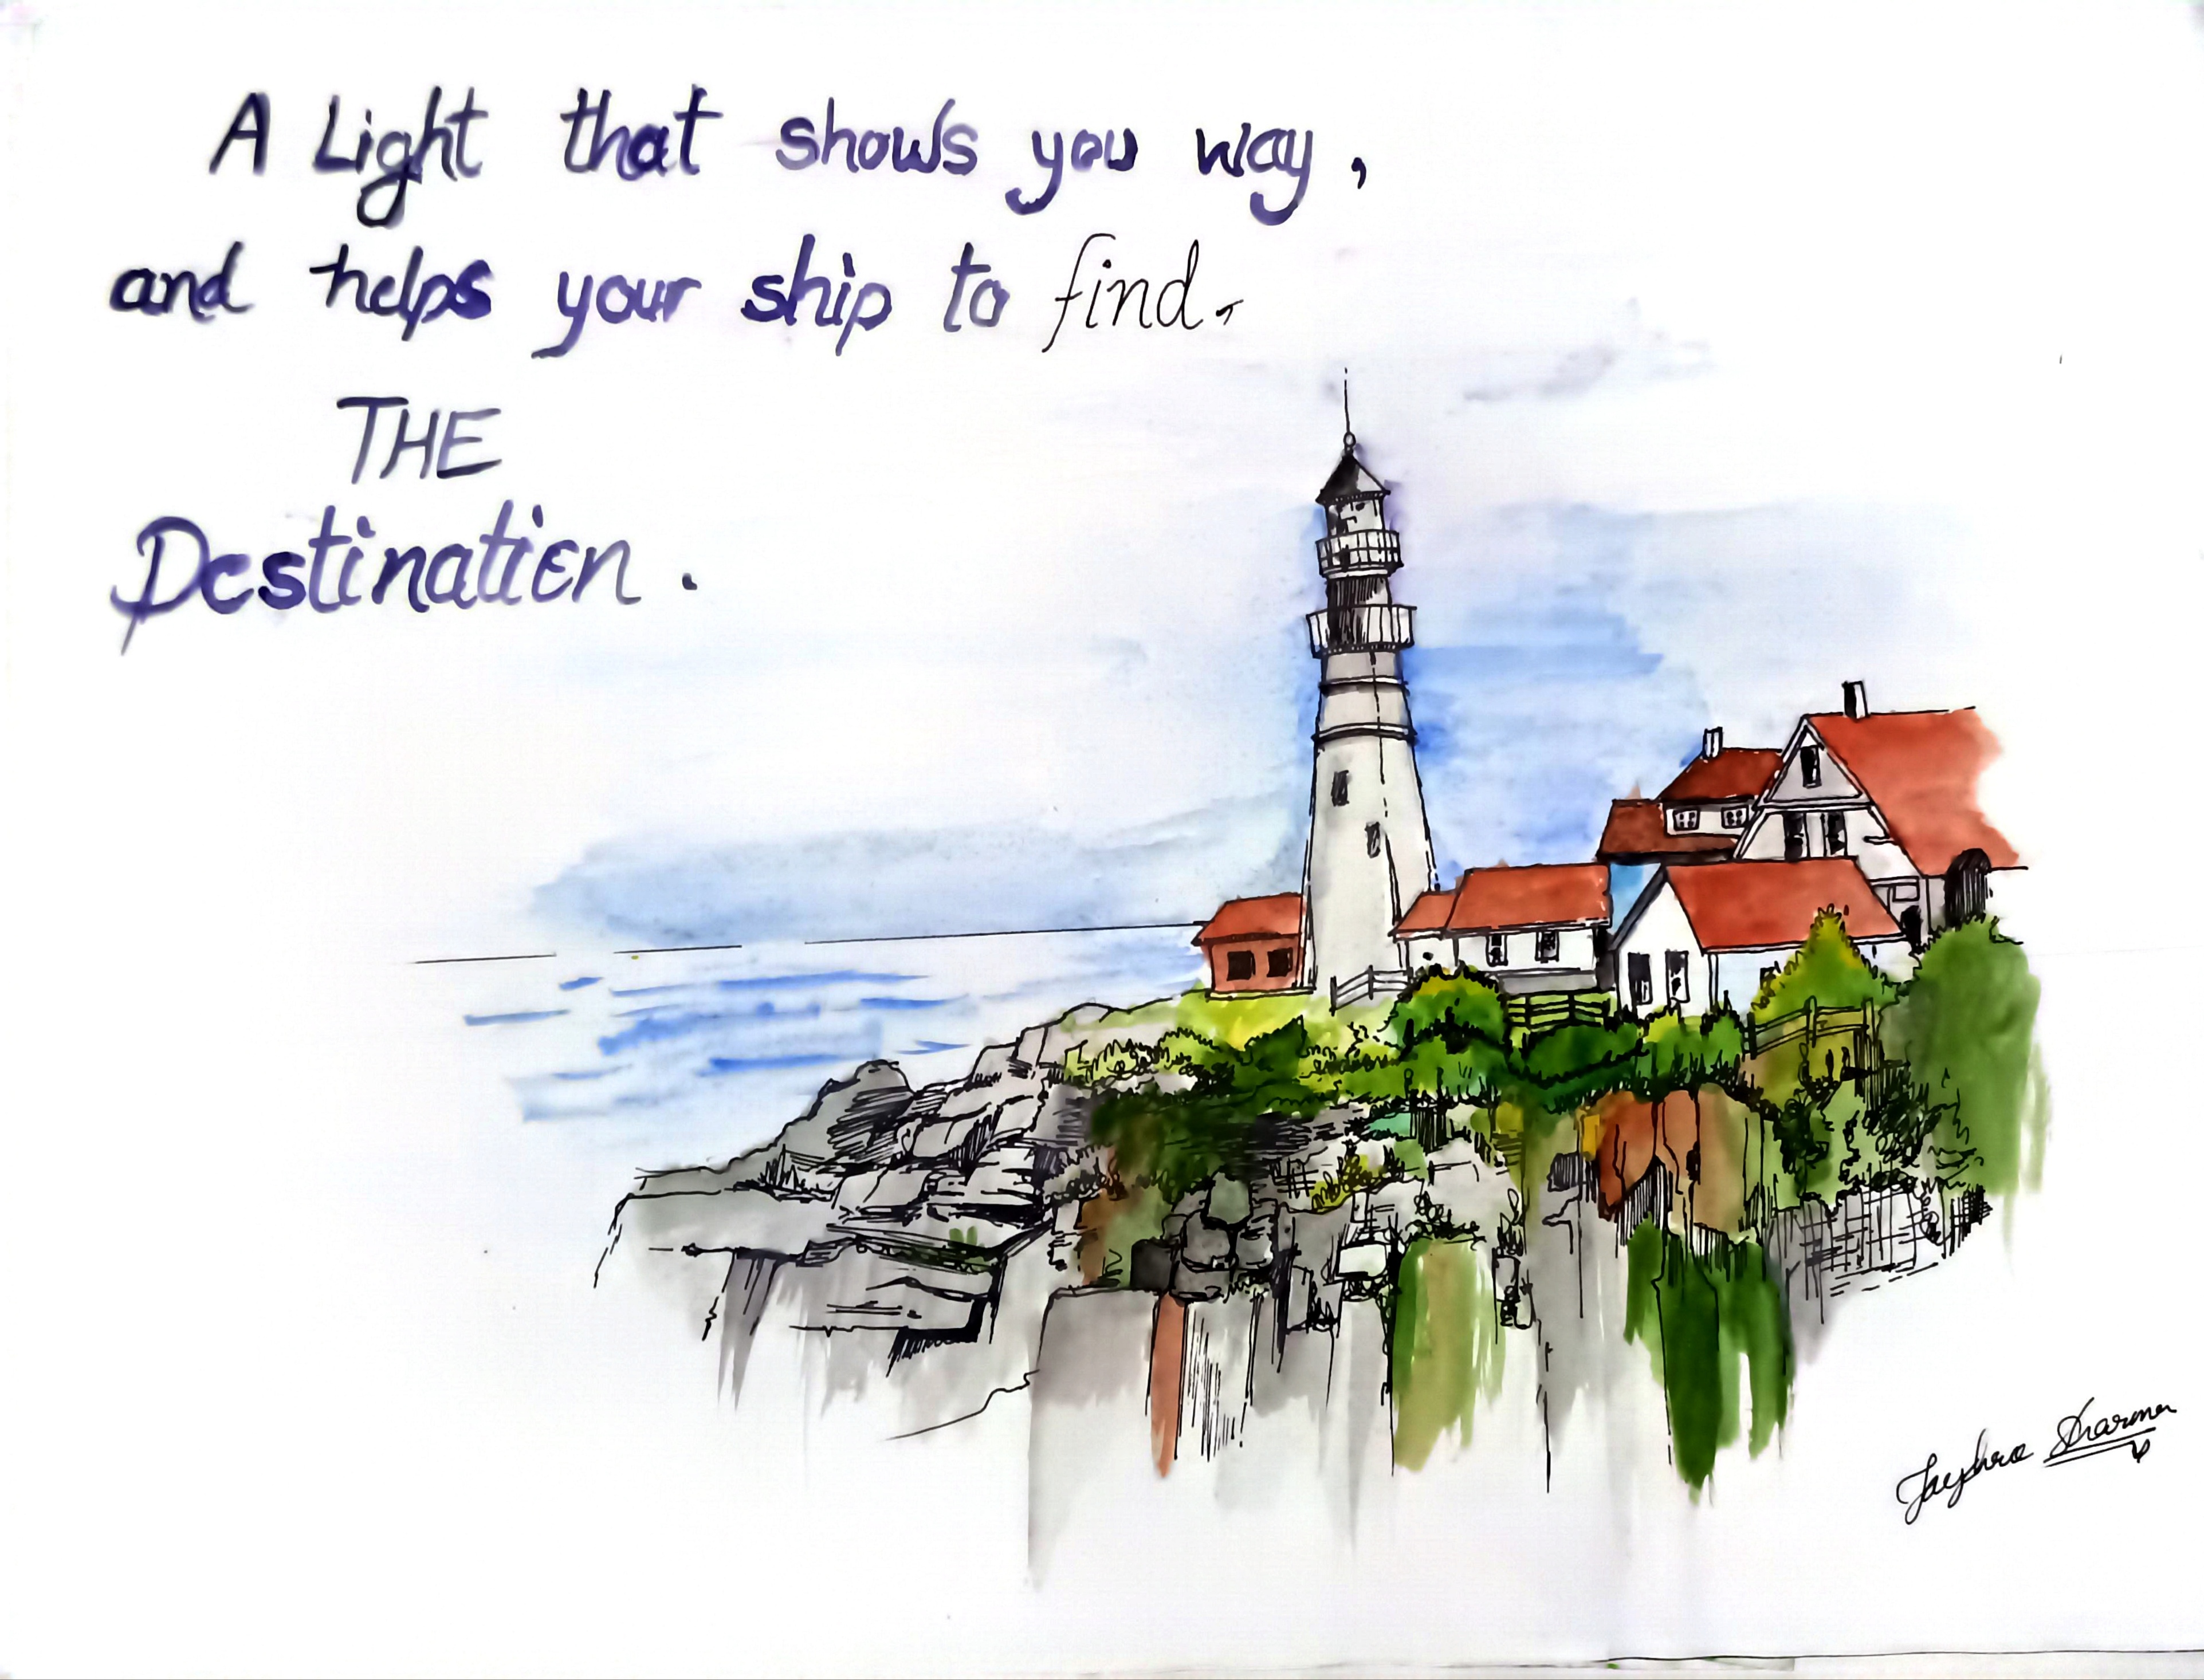 A Light that shows you way,
and helps your ship to find,
THE
Destination.
Sharma